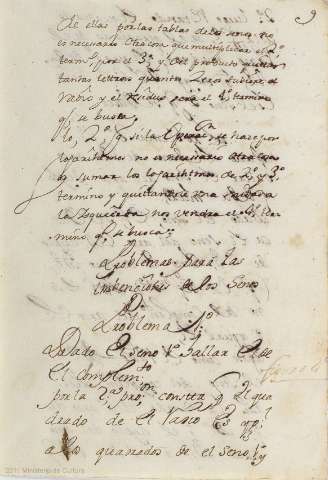 9
de ellas por las tablas de los senos no
es necesario otra cosa que multiplicar el 2º
term.º por el 3º y del producto quitar
tantas letras quantos zeros tubiere el
radio y el residuo sera el 4º termino
q̃ se busca
lo, 2º q̃ si la se hace por
logarithmos no es necesario otra cosa
q̃ sumar los logarithmos de 2º y 3º
termino y quitando una unidad a
la izquierda nos vendra el 4º ter
mino q̃ se busca
Problemas para las
imbenciones de los Senos
Problema 1º
Dado el seno 1º hallar el de
el complem.to
por la 1ª pro; consta q̃ el qua
drado de el Radio es
a los quadrados de el seno 1º y
2011 Ministerio de Cultura